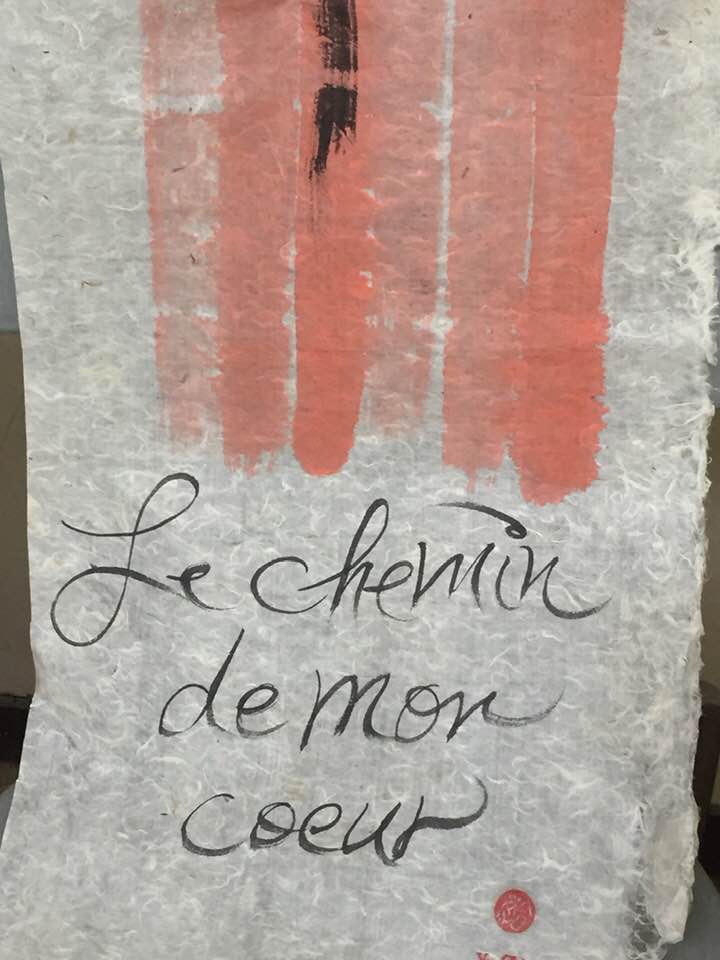 Le chemin
de mon
coeur